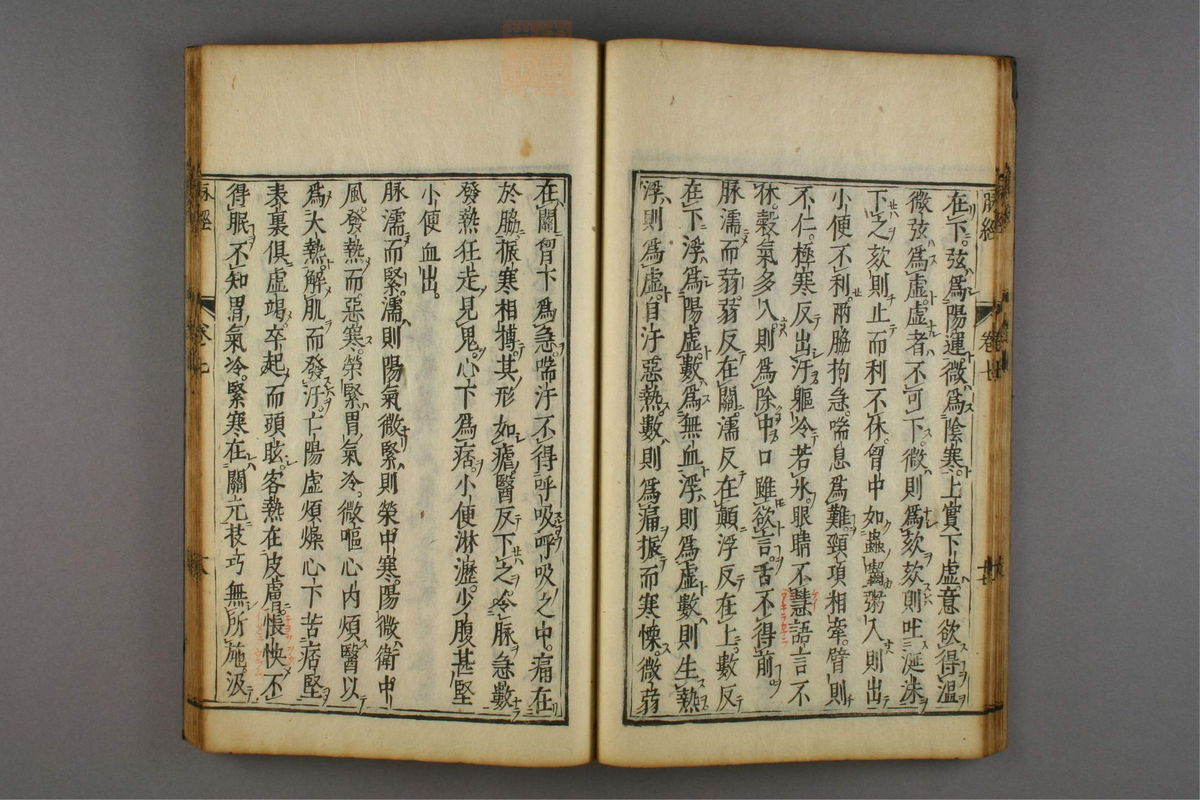 在下弦爲陽運微爲陰寒上實下虛意欲得溫
微弦爲虛虛者不可下微則爲欬欬則吐涎沫
下之欬則止而利不休胷中如蟲齧粥入則出
小便不利兩脇拘急喘息爲難頸項相牽臂則
不仁極寒反出汗軀冷若氷眼睛不慧語言不
休穀氣多入則爲除中口雖欲言舌不得前
脉濡而弱弱反在關濡反在顛浮反在上數反
在下浮爲陽虛數爲無血浮則爲虛數則生熱
浮則爲虛自汗惡熱數則爲痛振而寒慄微弱
在關胷下爲急喘汗不得呼吸呼吸之中痛在
於脇振寒相搏其形如瘧醫反下之令脉急數
發熱狂走見鬼心下爲痞小便淋瀝少腹甚堅
小便血出
脉濡而緊濡則陽氣微緊則榮中寒陽微衛中
風發熱而惡寒榮緊胃氣冷微嘔心內煩醫以
爲大熱解肌而發汗亡陽虛煩燥心下苦痞堅
表裏俱虛竭卒起而頭眩客熱在皮膚悵怏不
得眠不知胃氣冷緊寒在關元技巧無所施汲
脉經
卷七